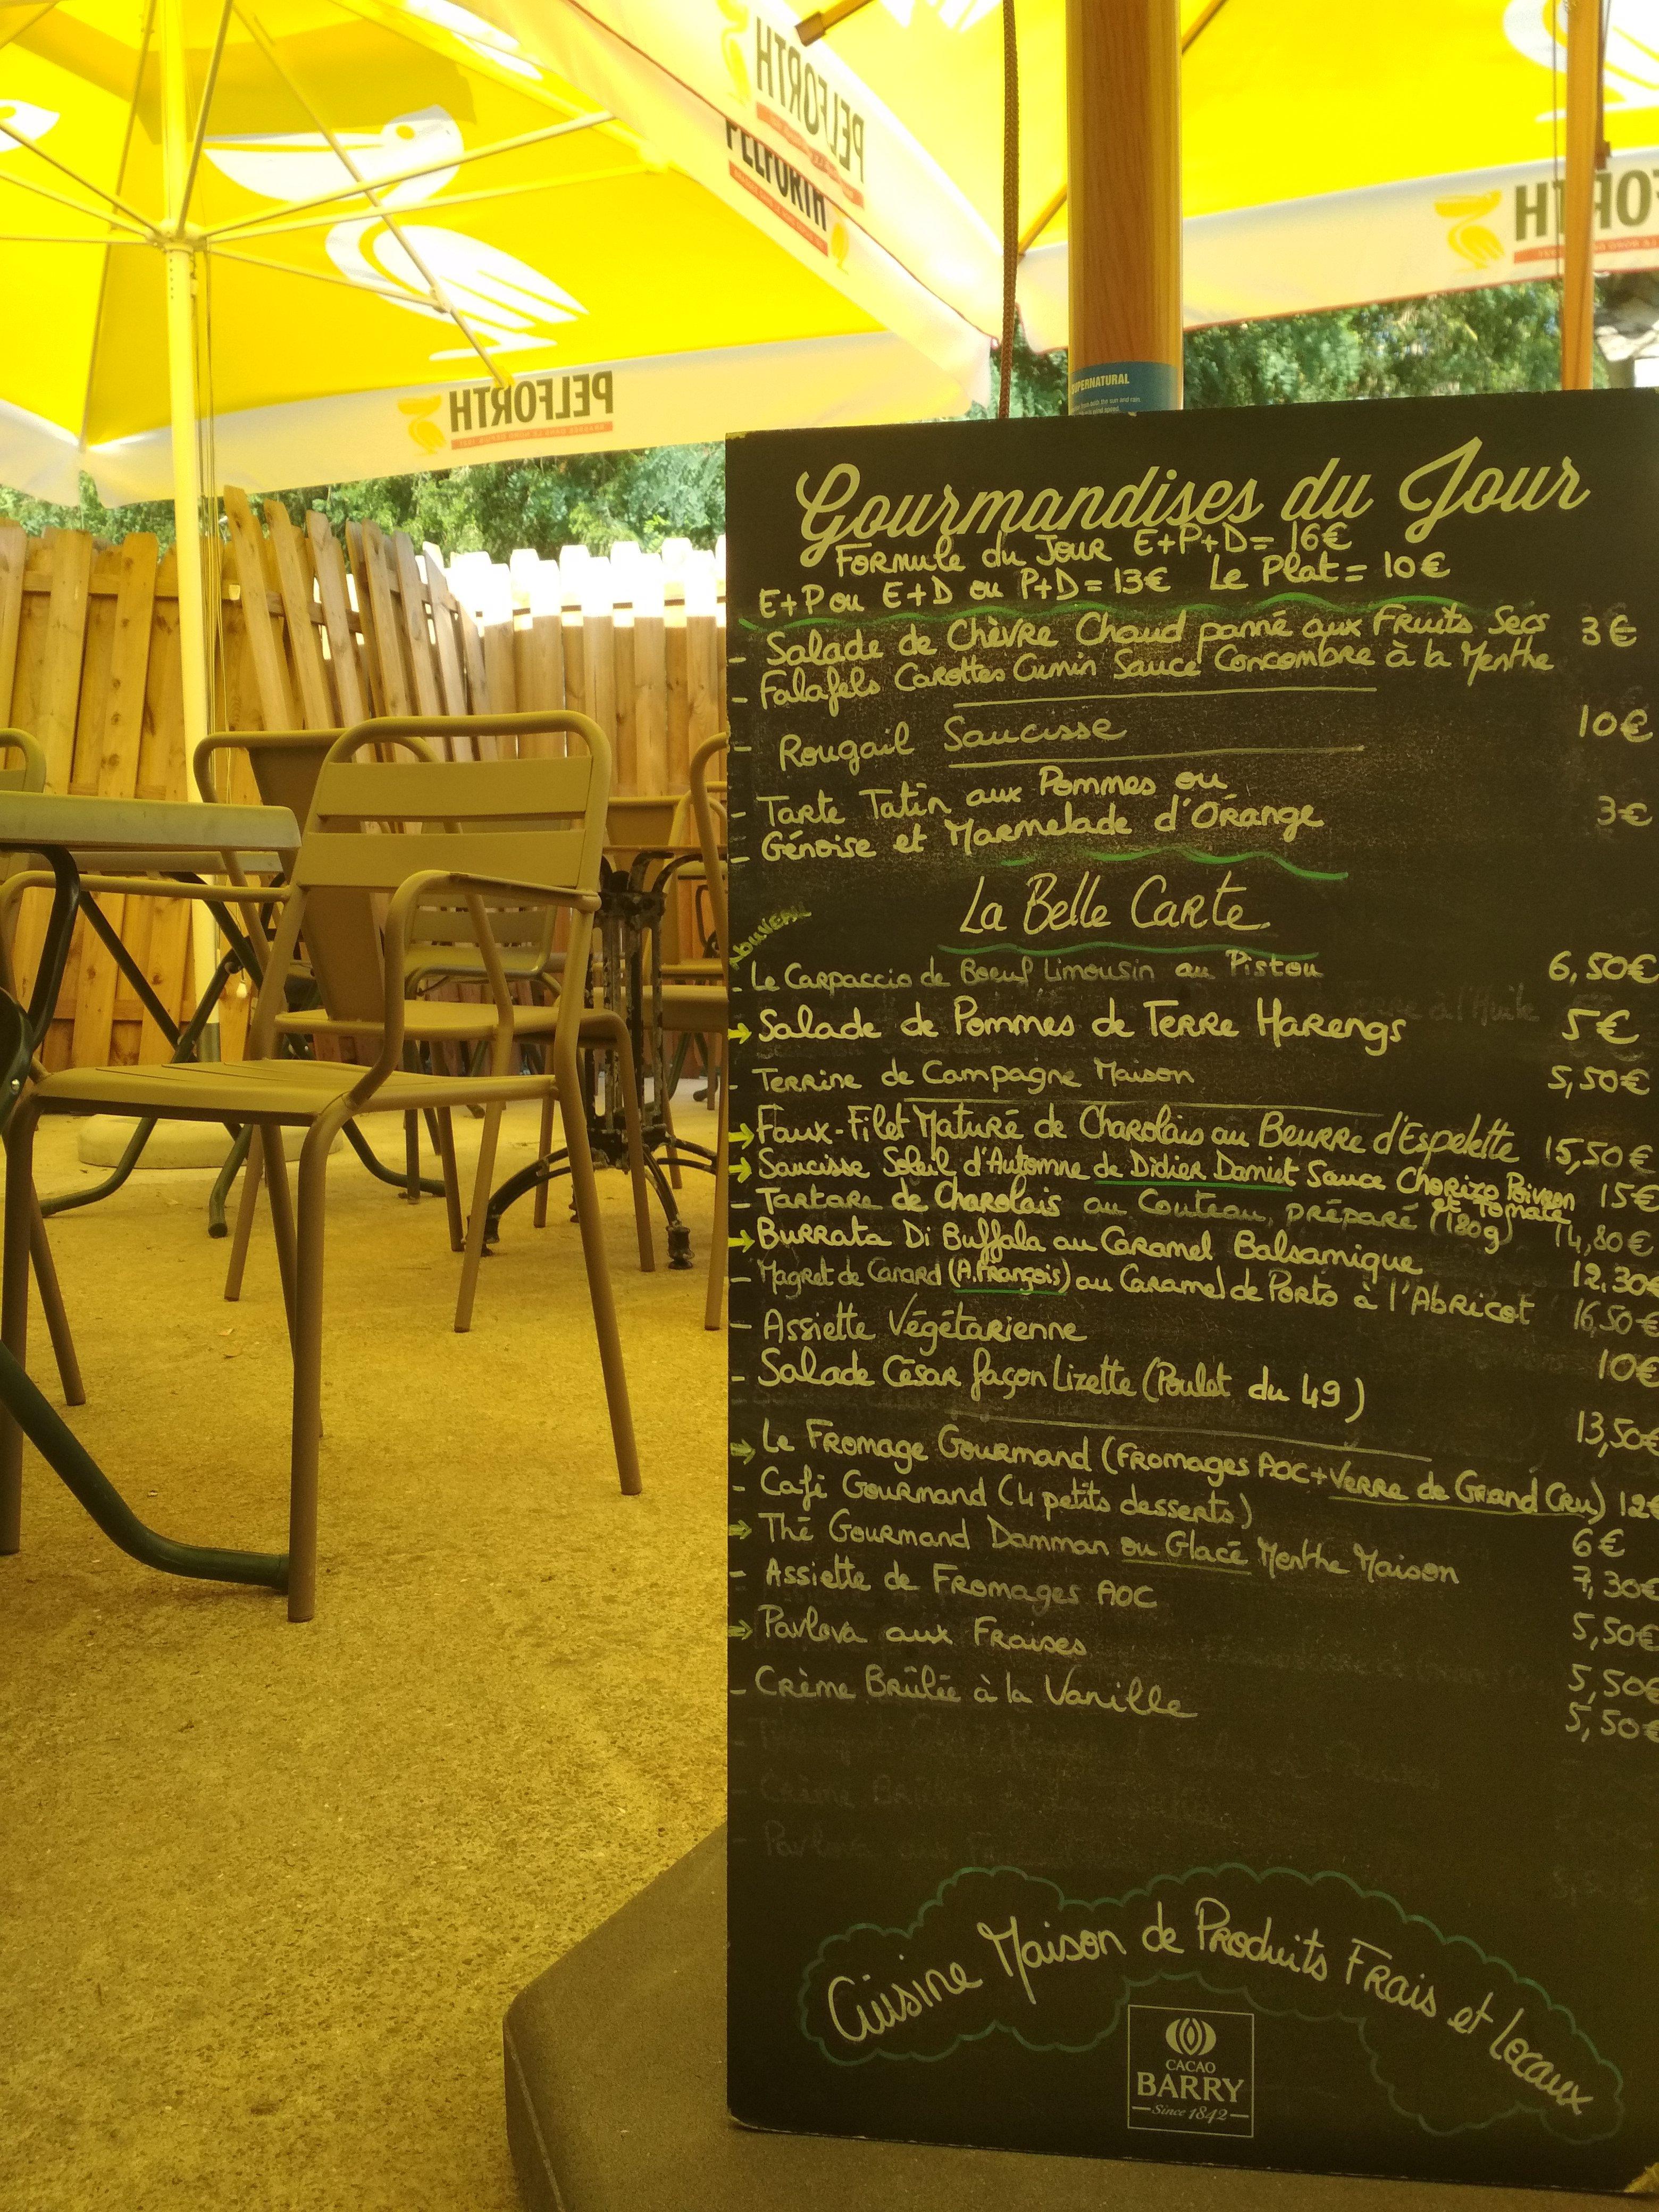 PELFORTH
PELFORTH
PELFORTH
FORTH
SUPERNATURAL
Gourmandises du Jour
Formule du Jour E+P+D= 16€
E+P ou E+D ou P+D = 13€ Le Plat = 10€
- Salade de Chèvre Chaud panné aux Fruits Secs 3€
- Falafels Carottes Cumin Sauce Concombre à la Menthe
- Rougail Saucisse 10€
- Tarte Tatin aux Pommes ou
- Génoise et Marmelade d'Orange 3€
La Belle Carte
Nouveau
- Le Carpaccio de Boeuf Limousin au Pistou 6,50€
→ Salade de Pommes de Terre Harengs 5€
- Terrine de Campagne Maison 5,50€
→ Faux-Filet Maturé de Charolais au Beurre d'Espelette 15,50€
→ Saucisse Soleil d'Automne de Didier Damiet Sauce Chorizo Poivron et Tomate 15€
- Tartare de Charolais au Couteau, préparé (180g) 14,80€
→ Burrata Di Buffala au Caramel Balsamique 12,30€
- Magret de Canard (A.François) au Caramel de Porto à l'Abricot 16,50€
- Assiette Végétarienne 10€
- Salade César façon Lizette (Poulet du 49) 13,50€
→ Le Fromage Gourmand (Fromages AOC+Verre de Grand Cru) 12€
- Café Gourmand (4 petits desserts) 6€
→ Thé Gourmand Damman ou Glacé Menthe Maison 7,30€
- Assiette de Fromages AOC 5,50€
→ Pavlova aux Fraises 5,50€
- Crème Brûlée à la Vanille 5,50€
Cuisine Maison de Produits Frais et Locaux
CACAO
BARRY
Since 1842